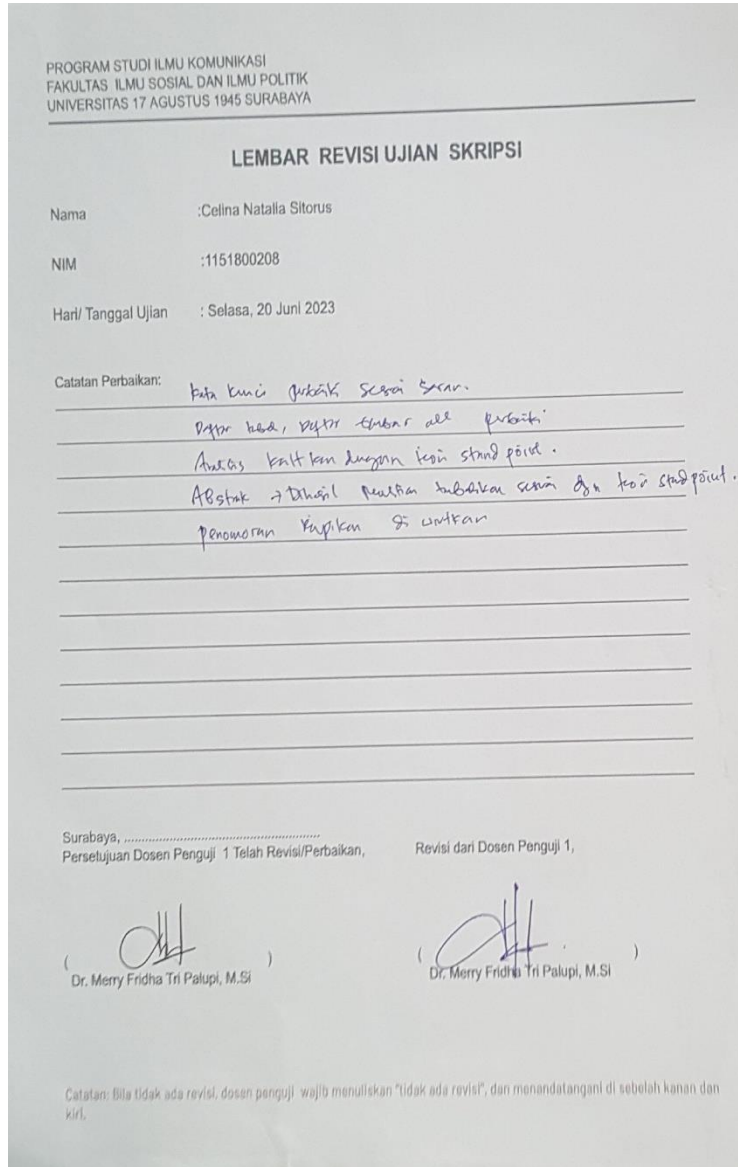 PROGRAM STUDI ILMU KOMUNIKASI
FAKULTAS ILMU SOSIAL DAN ILMU POLITIK
UNIVERSITAS 17 AGUSTUS 1945 SURABAYA
LEMBAR REVISI UJIAN SKRIPSI
Nama :Celina Natalia Sitorus
NIM :1151800208
Hari/ Tanggal Ujian : Selasa, 20 Juni 2023
Catatan Perbaikan: Kata kunci perbaiki sesuai saran.
Daftar tabel, Daftar Gambar all perbaiki
Analisis kaitkan dengan teori stand point.
Abstrak → Dihasil penelitian sesuai dgn teori stand point.
Penomoran Rapikan di urutkan
Surabaya, ......................................................
Persetujuan Dosen Penguji 1 Telah Revisi/Perbaikan,
Revisi dari Dosen Penguji 1,
( )
( )
Dr. Merry Fridha Tri Palupi, M.Si
Dr. Merry Fridha Tri Palupi, M.Si
Catatan: Bila tidak ada revisi, dosen penguji wajib menuliskan "tidak ada revisi", dan menandatangani di sebelah kanan dan
kiri.